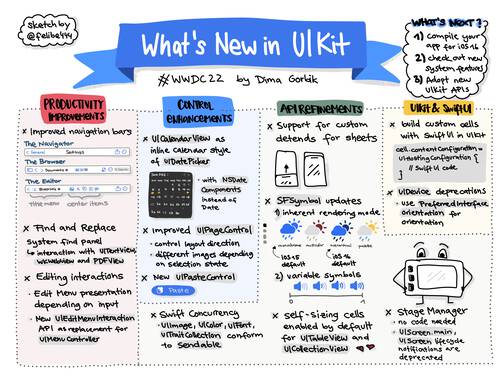 sketch by
@felibe444
What's New in UIKit
#WWDC22 by Dima Gorbik
WHAT'S NEXT?
1) Compile your
app for iOS 16
2) check out new
system features
3) Adopt new
UIKit APIs
PRODUCTIVITY
IMPROVEMENTS
x Improved navigation bars
The Navigator
General
Settings
The Browser
Documents
The Editor
title menu
center items
x Find and Replace
system find panel
↳ interaction with UITextView,
WKWebView and PDFView
x Editing interactions
• Edit Menu presentation
depending on input
• New UIEditMenuInteraction
API as replacement for
UIMenuController
CONTROL
ENHANCEMENTS
x UICalendarView as
inline Calendar style
of UIDatePicker
• with NSDate
Components
instead of
Date
x Improved UIPageControl
• control layout direction
• different images depending
on selection state
x New UIPasteControl
Paste
x Swift Concurrency
↳ UIImage, UIColor, UIFont,
UITraitCollection conform
to Sendable
API REFINEMENTS
x Support for custom
detends for sheets
x SFSymbol updates
1) inherent rendering mode
monochrome
multicolor
hierarchical
palette
iOS 15
default
iOS 16
default
2) variable symbols
0
1
x self-sizing cells
enabled by default
for UITableView and
UICollectionView
UIKit & SwiftUI
x build custom cells
with SwiftUI in UIKit
cell.contentConfiguration =
UIHostingConfiguration {
// Swift UI code
}
x UIDevice deprecations
• use PreferredInterface
orientation for
orientation
x Stage Manager
• no code needed
• UIScreen.main,
UIScreen lifecycle
notifications are
deprecated